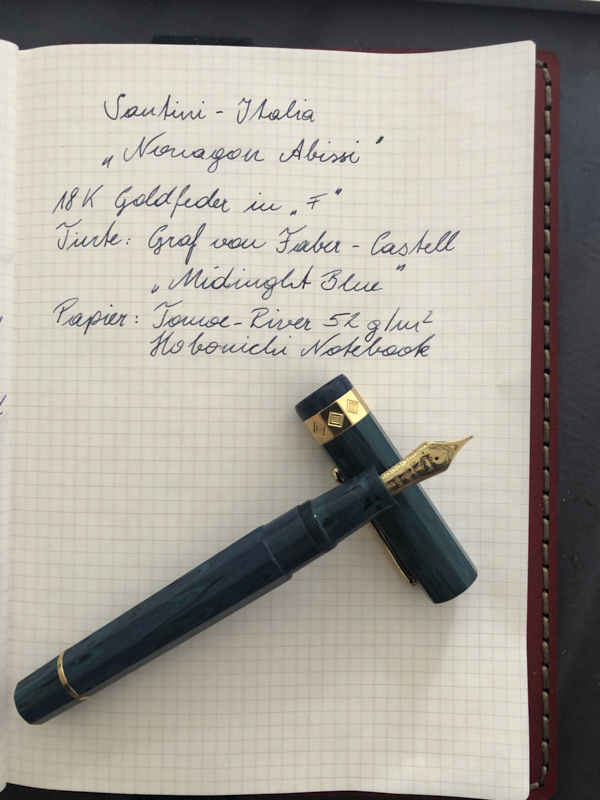 Santini - Italia
„Nonagon Abissi"
18K Goldfeder in „F"
Tinte: Graf von Faber - Castell
„Midinght Blue"
Papier: Tomoe-River 52 g/m²
Hobonichi Notebook